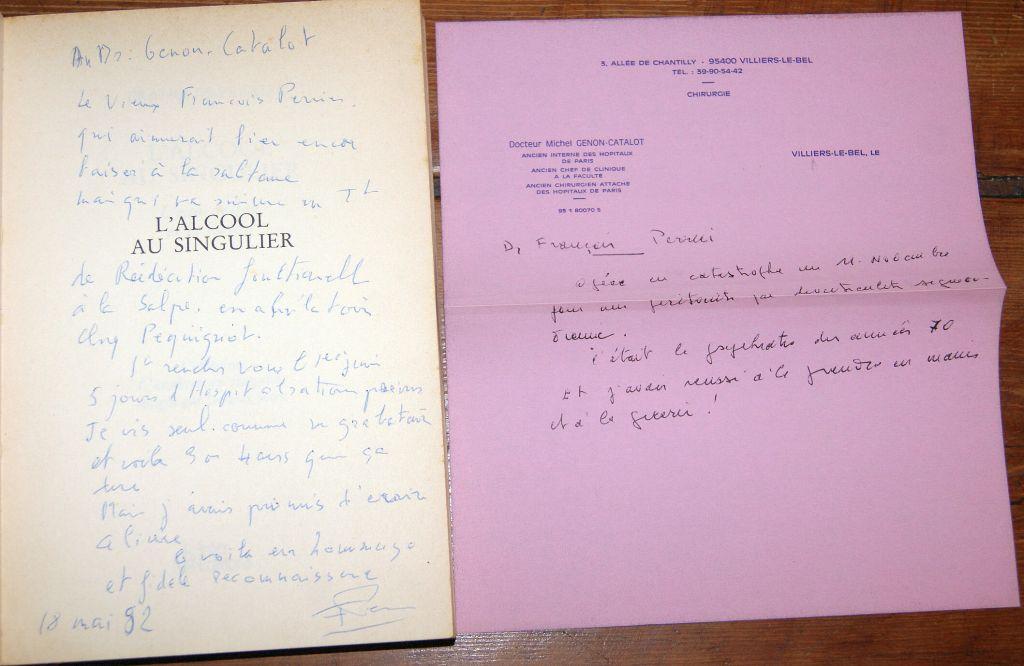 Au Dr. Genon-Catalot
Le Vieux François Perrin.
qui aimerait bien encor
baiser à la
mais qui va
L'ALCOOL
AU SINGULIER
de Rééducation fonctionnell
à la Salpe. en
Chez Pequignot.
1er rendez vous le
5 jours d'Hospitalisation
Je vis seul. comme un grabataire
et voila 3 ou 4 ans que ça
dure
Mais j'avais promis d'ecrire
a livre
le voila en hommage
et fidele reconnaissance
18 mai 82
3, ALLÉE DE CHANTILLY - 95400 VILLIERS-LE-BEL
TEL. : 39-90-54-42
CHIRURGIE
Docteur Michel GENON-CATALOT
ANCIEN INTERNE DES HOPITAUX
DE PARIS
ANCIEN CHEF DE CLINIQUE
A LA FACULTE
ANCIEN CHIRURGIEN ATTACHE
DES HOPITAUX DE PARIS
95 1 80070 5
VILLIERS-LE-BEL, LE
Dr François Perrin
opéré en catastrophe un 11 Novembre
pour une péritonite par
c'était le psychiatre des années 70
et j'avais réussi à le prendre en mains
et à le guérir !